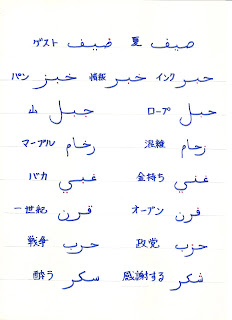 ゲスト ضيف 夏 صيف
パン خبز 情報 خبر インク حبر
山 جبل ロープ حبل
マーブル رخام 混雑 زحام
バカ غبي 金持ち غني
一世紀 قرن オーブン فرن
戦争 حرب 政党 حزب
酔う سكر 感謝する شكر